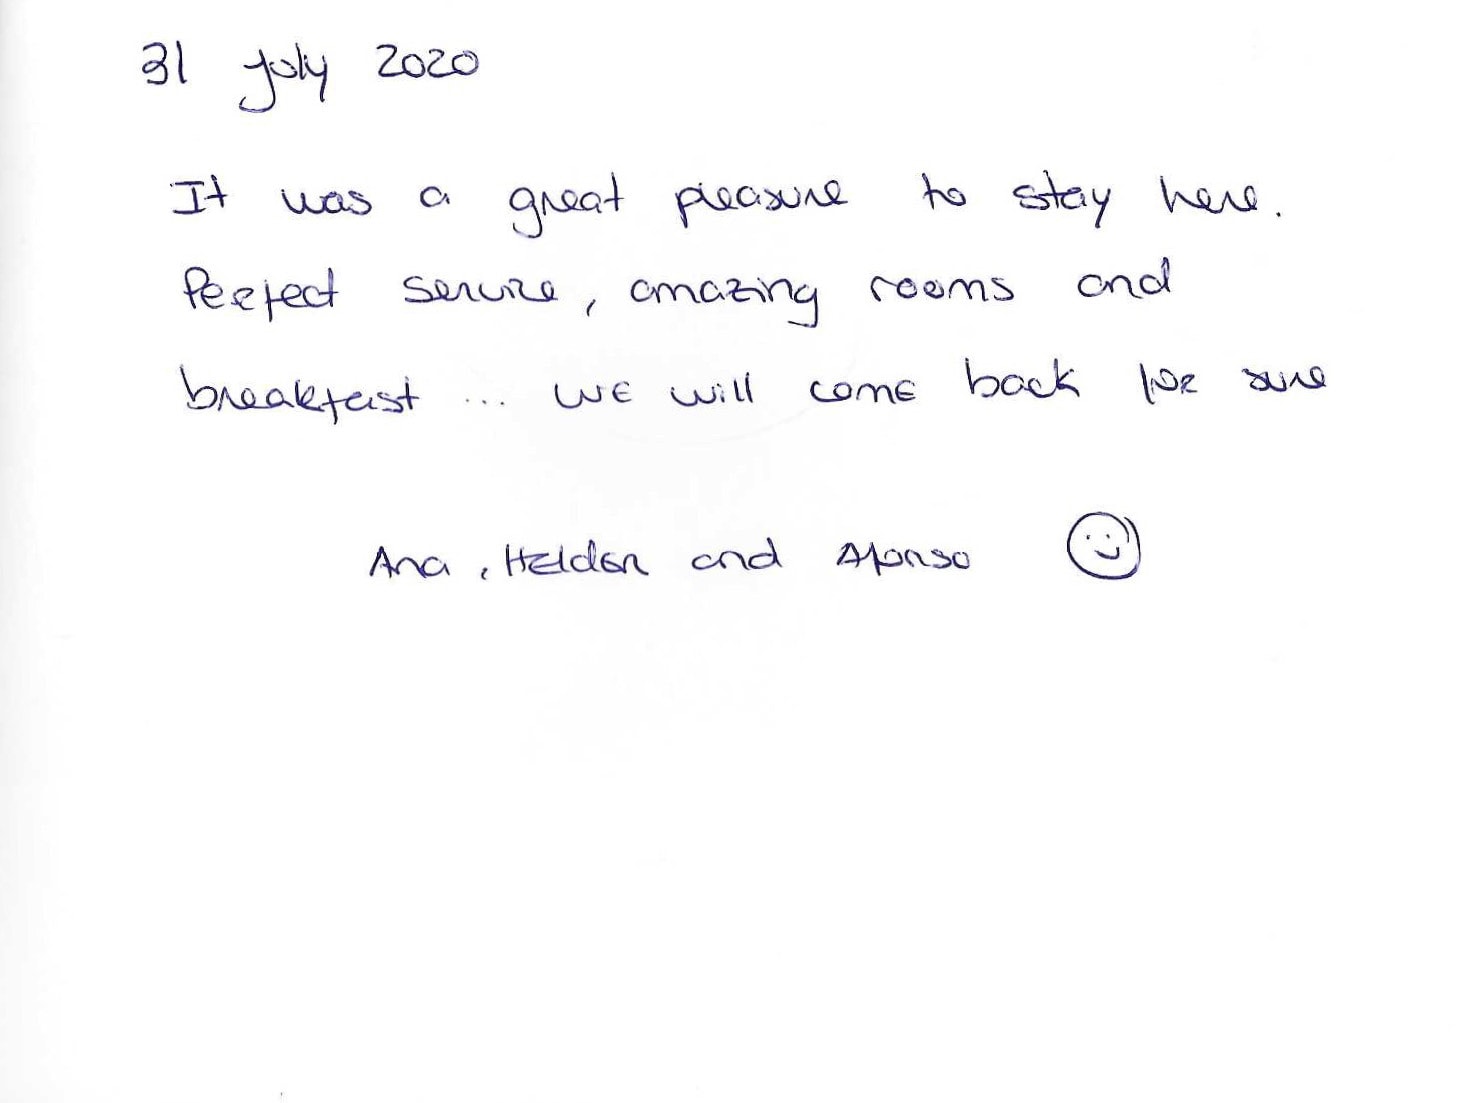 31 July 2020
It was a great pleasure to stay here.
Perfect service, amazing rooms and
breakfast ... we will come back for sure
Ana, Helder and Afonso